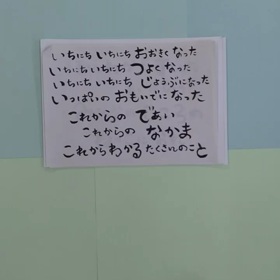 いちにち いちにち おおきく なった
いちにち いちにち つよく なった
いちにち いちにち じょうぶに なった
いっぱいの おもいでに なった
これからの であい
これからの なかま
これからわかる たくさんのこと